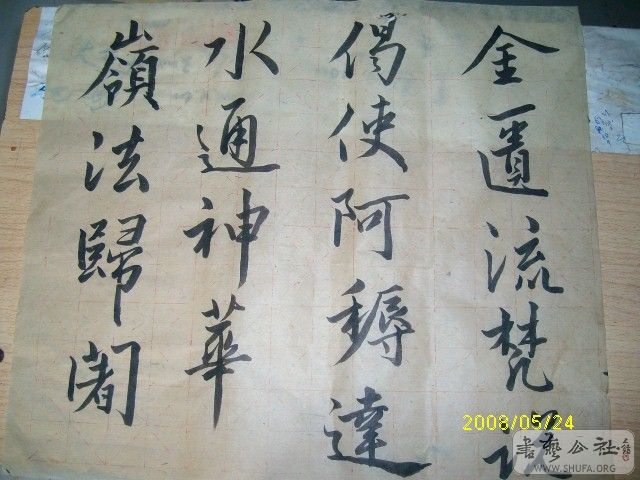 金匱流梵説
偈使阿耨達
水通神華
嶺法歸闍
2008/05/24
書藝公社
WWW.SHUFA.ORG